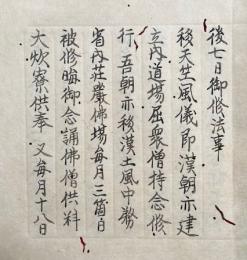 後七日御修法事
移天竺風儀即漢朝亦建
立内道場屈衆僧持念修
行吾朝亦移漢土風中務
省内荘嚴佛場毎月三箇日
被修晦御念誦佛僧供料
大炊寮供奉 又毎月十八日